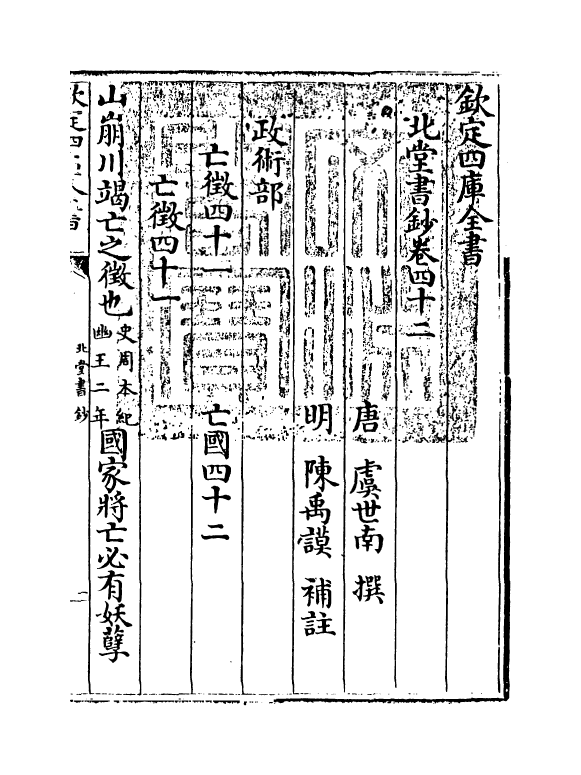 欽定四庫全書
北堂書鈔卷四十二
唐 虞世南 撰
明 陳禹謨 補註
政術部
亡徵四十一 亡國四十二
亡徵四十一
山崩川竭亡之徵也史周本紀幽王二年國家將亡必有妖孽
北堂書鈔